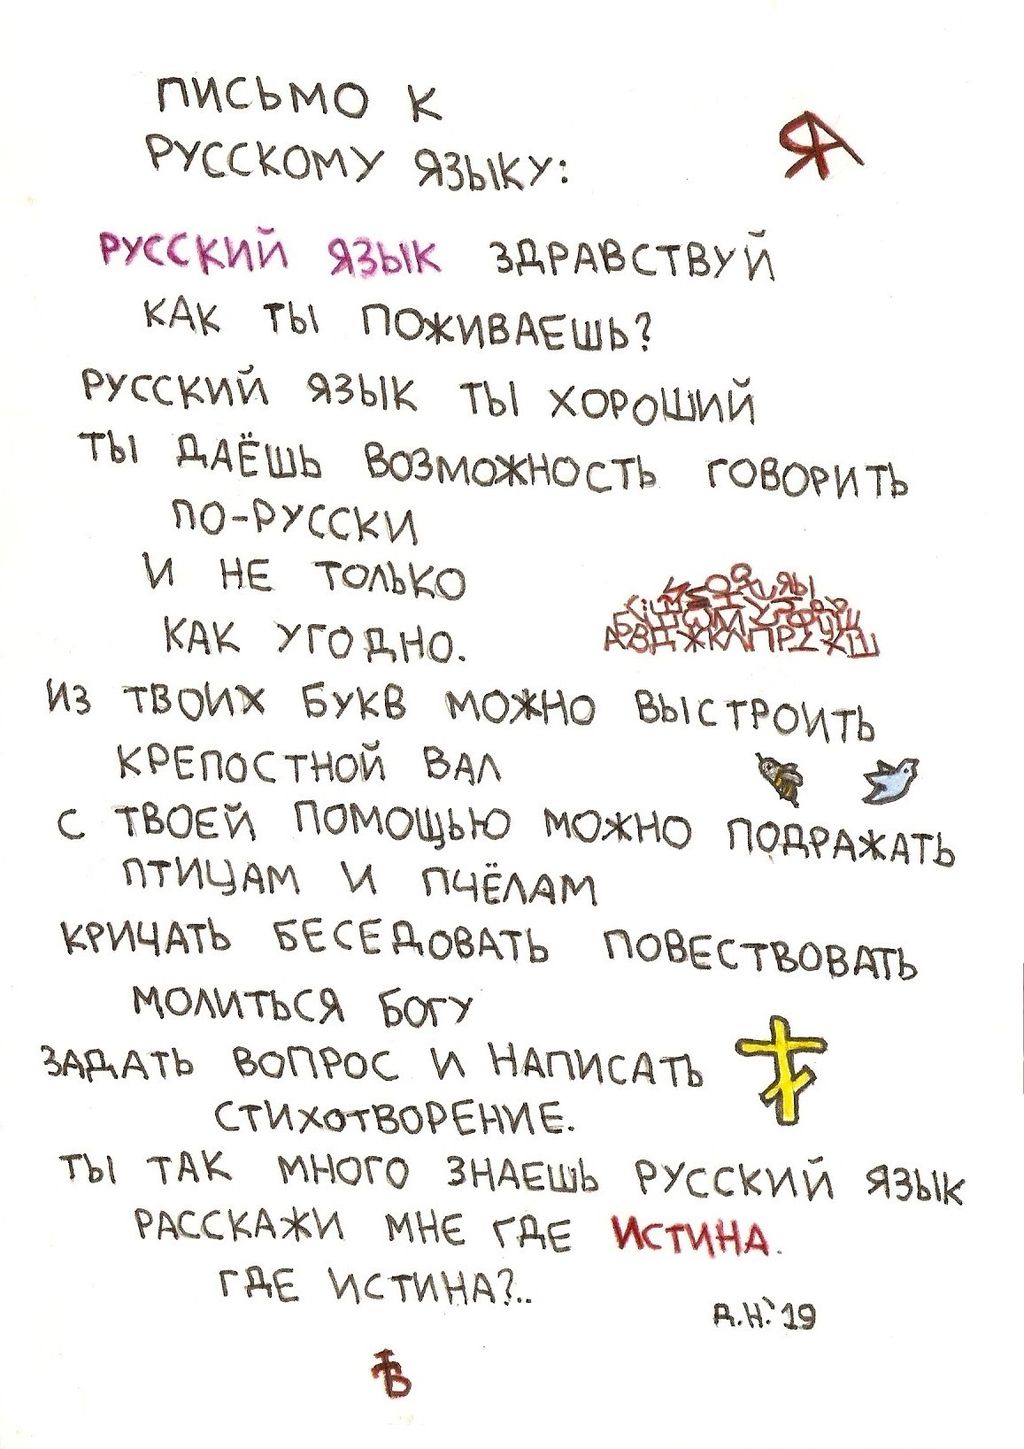 ПИСЬМО К
РУССКОМУ ЯЗЫКУ:
Я
РУССКИЙ ЯЗЫК ЗДРАВСТВУЙ
КАК ТЫ ПОЖИВАЕШЬ?
РУССКИЙ ЯЗЫК ТЫ ХОРОШИЙ
ТЫ ДАЁШЬ ВОЗМОЖНОСТЬ ГОВОРИТЬ
ПО-РУССКИ
И НЕ ТОЛЬКО
КАК УГОДНО.
ИЗ ТВОИХ БУКВ МОЖНО ВЫСТРОИТЬ
КРЕПОСТНОЙ ВАЛ
С ТВОЕЙ ПОМОЩЬЮ МОЖНО ПОДРАЖАТЬ
ПТИЦАМ И ПЧЁЛАМ
КРИЧАТЬ БЕСЕДОВАТЬ ПОВЕСТВОВАТЬ
МОЛИТЬСЯ БОГУ
ЗАДАТЬ ВОПРОС И НАПИСАТЬ
СТИХОТВОРЕНИЕ.
ТЫ ТАК МНОГО ЗНАЕШЬ РУССКИЙ ЯЗЫК
РАССКАЖИ МНЕ ГДЕ ИСТИНА.
ГДЕ ИСТИНА?..
Д.Н.'19
Ѣ